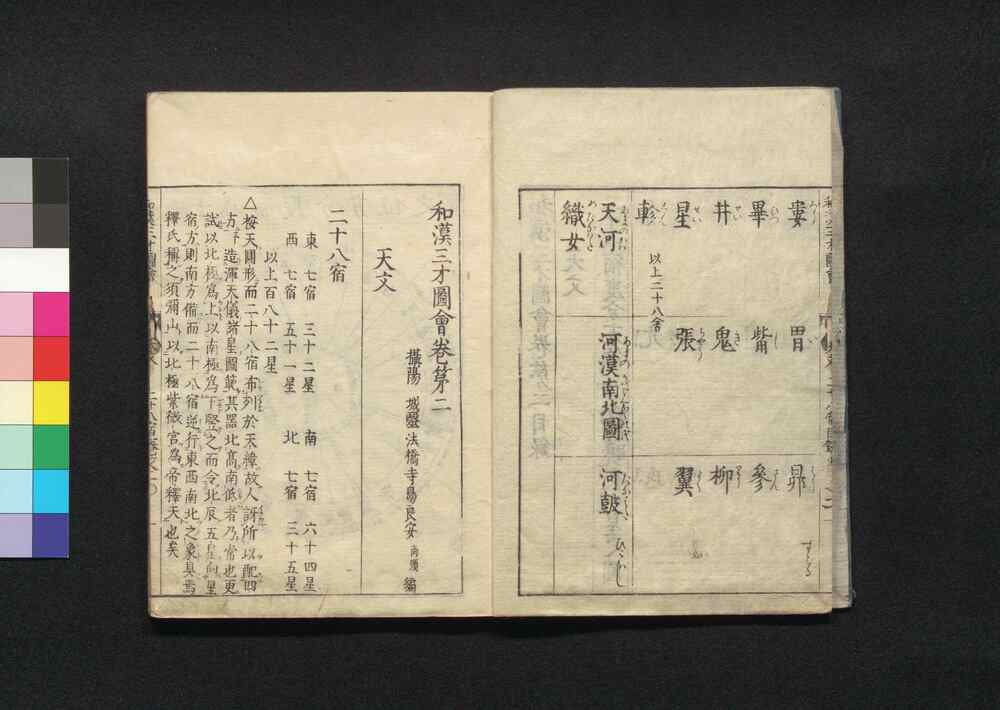 婁 胃 昴
畢 觜 參
井 鬼 柳
星 張 翼
軫 以上二十八宿
天河 河漢南北圖 河皷
織女
和漢三才圖會巻第二
攝陽 城醫法橋寺島良安 尚順 編
天文
二十八宿
東 七宿 三十二星 南 七宿 六十四星
西 七宿 五十一星 北 七宿 三十五星
以上百八十二星
△按天圓形而二十八宿布列於天緯故人訝所以配四
方乎造渾天儀諸星圖範其器北髙南低者乃常也更
試以北極爲上以南極爲下竪之而令北辰五星向里
宿方則南方備而二十八宿逆行東西南北之象具焉
釋氏稱之須彌山以北極紫微宮爲帝釋天也矣